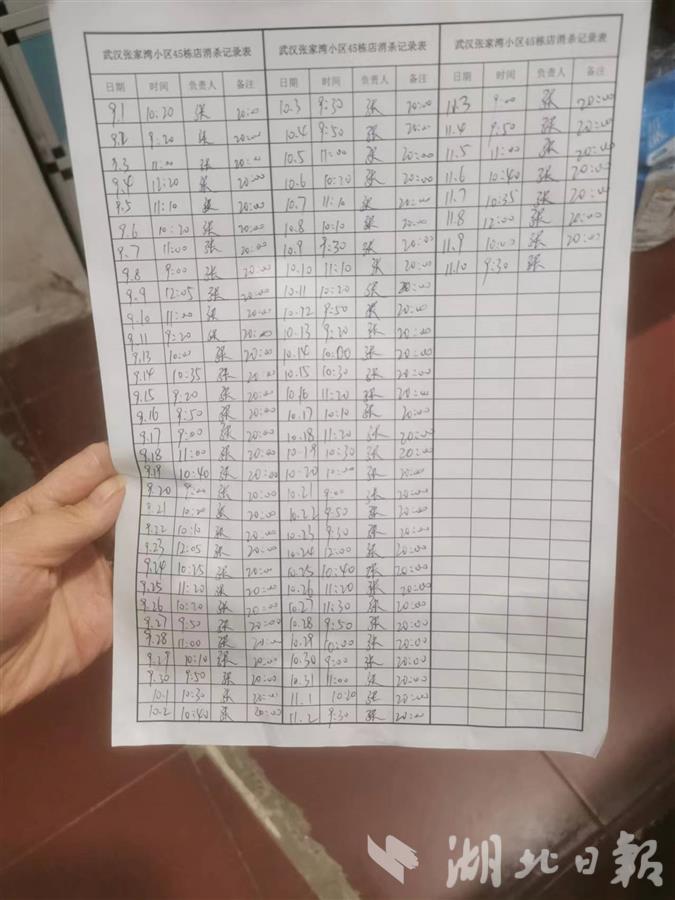 武汉张家湾小区45栋店消杀记录表
日期 时间 负责人 备注
9.1 10:20 张 20:00
9.2 9:20 张 20:00
9.3 11:00 张 20:00
9.4 12:20 张 20:00
9.5 11:10 张 20:00
9.6 10:20 张 20:00
9.7 11:00 张 20:00
9.8 9:00 张 20:00
9.9 12:05 张 20:00
9.10 11:00 张 20:00
9.11 9:20 张 20:00
9.13 10:00 张 20:00
9.14 10:35 张 20:00
9.15 9:20 张 20:00
9.16 9:50 张 20:00
9.17 9:00 张 20:00
9.18 11:00 张 20:00
9.19 10:40 张 20:00
9.20 9:00 张 20:00
9.21 10:20 张 20:00
9.22 10:10 张 20:00
9.23 12:05 张 20:00
9.24 10:25 张 20:00
9.25 11:20 张 20:00
9.26 10:20 张 20:00
9.27 9:50 张 20:00
9.28 11:00 张 20:00
9.29 10:10 张 20:00
9.30 9:50 张 20:00
10.1 10:30 张 20:00
10.2 10:40 张 20:00
武汉张家湾小区45栋店消杀记录表
日期 时间 负责人 备注
10.3 9:30 张 20:00
10.4 9:50 张 20:00
10.5 11:00 张 20:00
10.6 10:20 张 20:00
10.7 11:10 张 20:00
10.8 10:10 张 20:00
10.9 9:30 张 20:00
10.10 11:10 张 20:00
10.11 10:20 张 20:00
10.12 9:50 张 20:00
10.13 9:20 张 20:00
10.14 10:00 张 20:00
10.15 10:30 张 20:00
10.16 11:20 张 20:00
10.17 10:10 张 20:00
10.18 11:20 张 20:00
10.19 10:30 张 20:00
10.20 10:00 张 20:00
10.21 9:00 张 20:00
10.22 9:50 张 20:00
10.23 9:30 张 20:00
10.24 12:00 张 20:00
10.25 10:40 张 20:00
10.26 11:20 张 20:00
10.27 11:30 张 20:00
10.28 9:50 张 20:00
10.29 10:00 张 20:00
10.30 9:00 张 20:00
10.31 11:00 张 20:00
11.1 10:20 张 20:00
11.2 9:30 张 20:00
武汉张家湾小区45栋店消杀记录表
日期 时间 负责人 备注
11.3 9:00 张 20:00
11.4 9:50 张 20:00
11.5 11:00 张 20:00
11.6 10:40 张 20:00
11.7 10:35 张 20:00
11.8 12:00 张 20:00
11.9 10:00 张 20:00
11.10 9:30 张
湖北日报